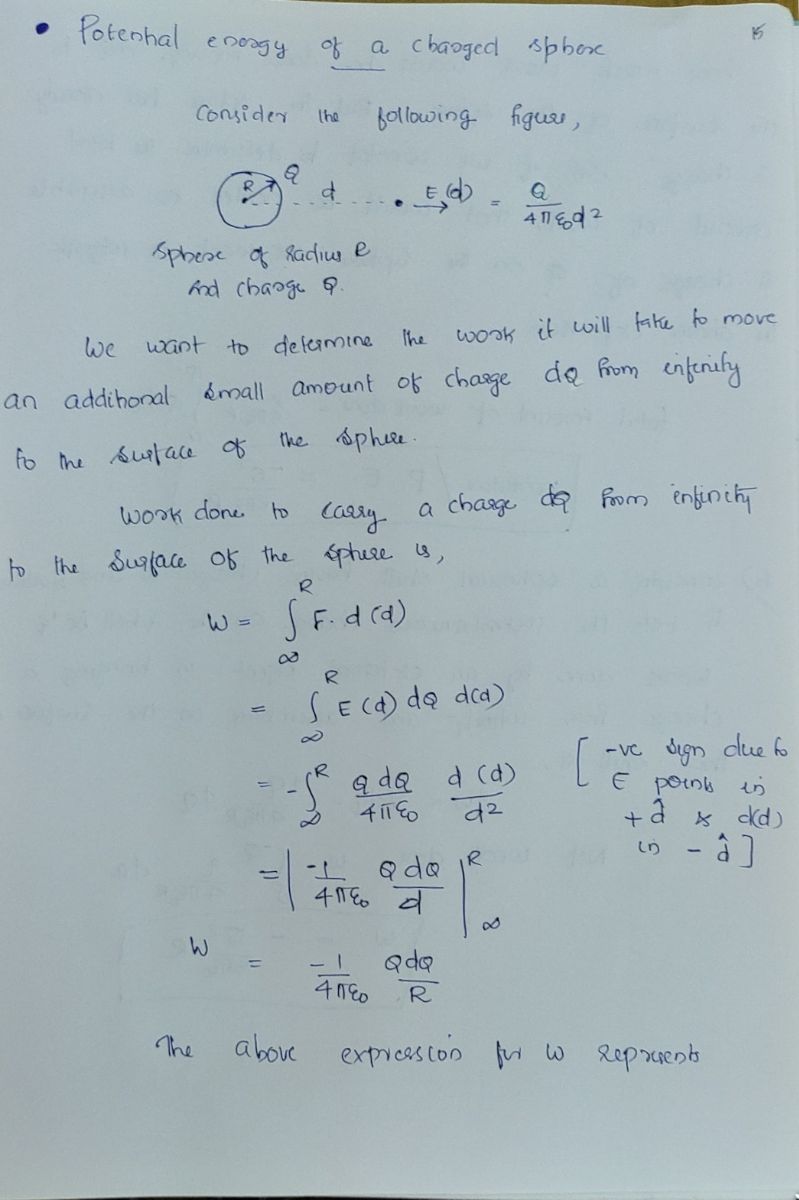 15
• Potential energy of a charged sphere
Consider the following figure,
R Q d E(d) = Q / 4πε₀d²
Sphere of radius R
And charge Q.
We want to determine the work it will take to move
an additional small amount of charge dQ from infinity
to the surface of the sphere.
Work done to carry a charge dQ from infinity
to the surface of the sphere is,
W = ∫_∞^R F. d(d)
= ∫_∞^R E(d) dQ d(d)
= -∫_∞^R Q dQ / 4πε₀ d(d) / d² [ -ve sign due to
E points in
+ d̂ & d(d)
in - d̂ ]
= | -1 / 4πε₀ Q dQ / d |_∞^R
W = -1 / 4πε₀ QdQ / R
The above expression for W represents